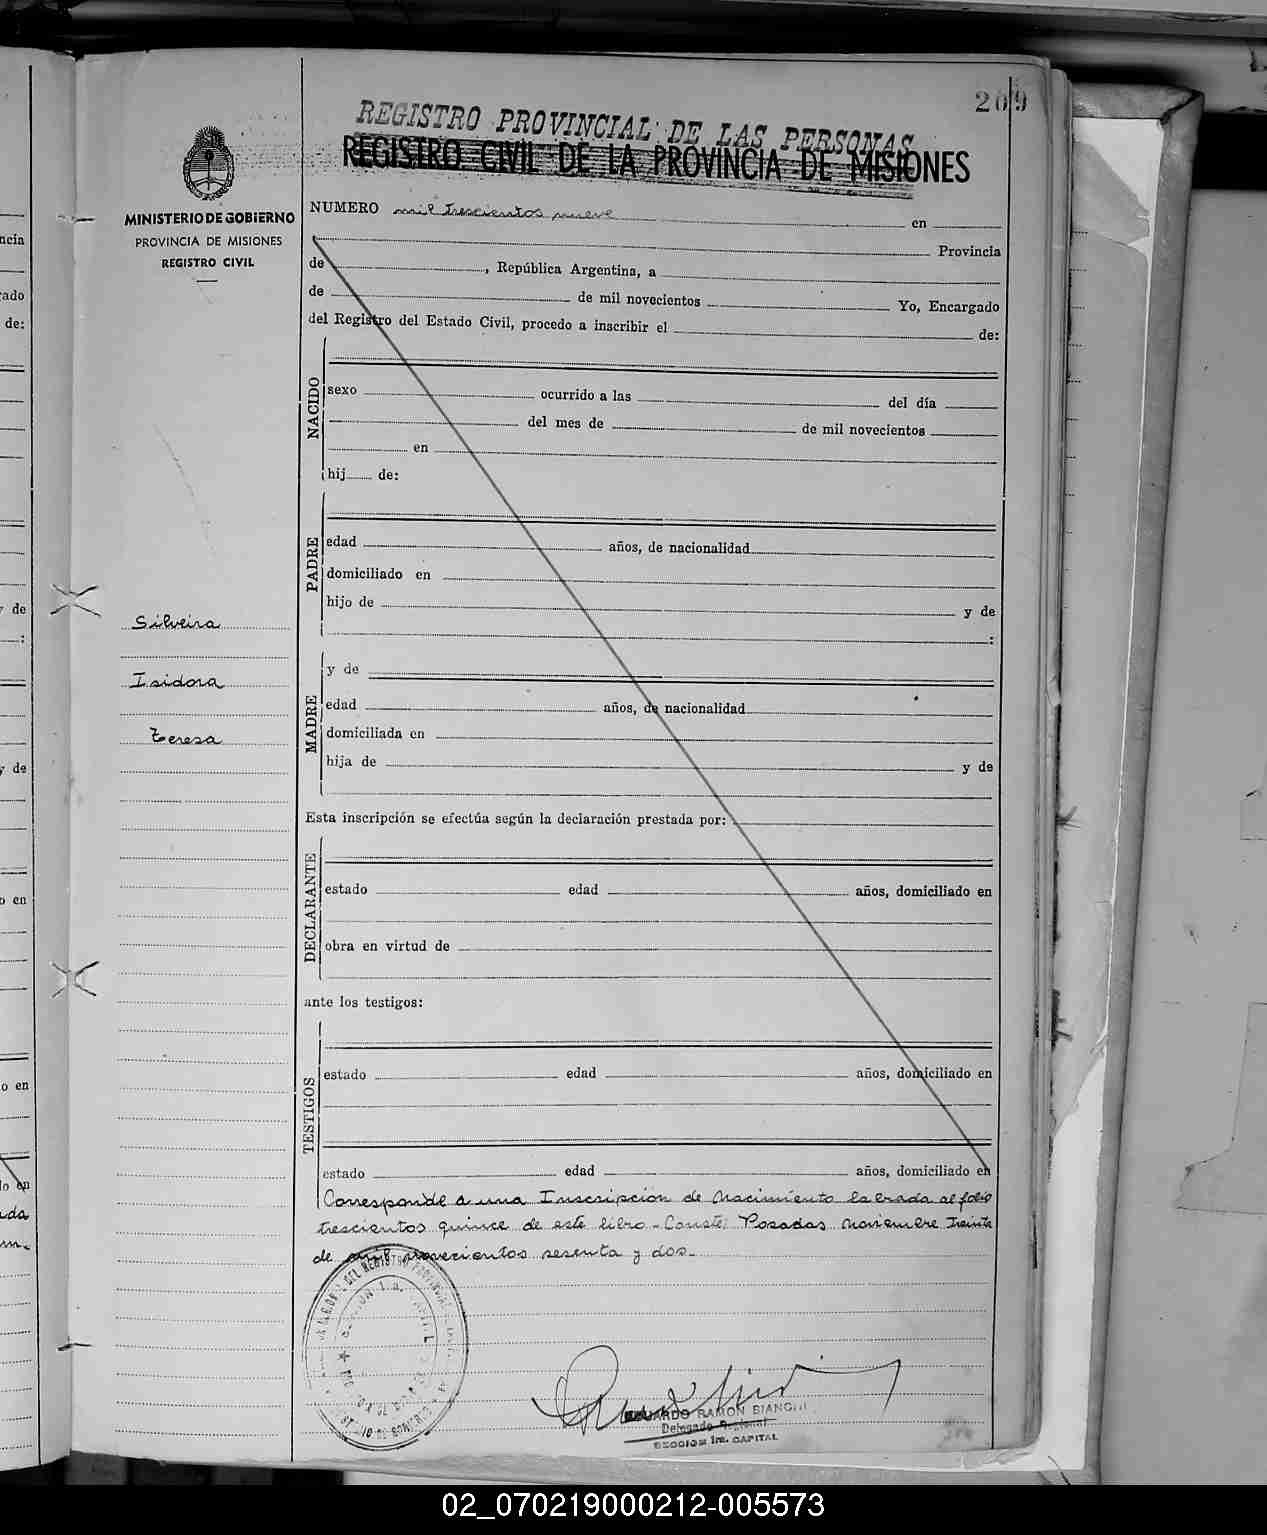 209
REGISTRO PROVINCIAL DE LAS PERSONAS
REGISTRO CIVIL DE LA PROVINCIA DE MISIONES
MINISTERIO DE GOBIERNO
PROVINCIA DE MISIONES
REGISTRO CIVIL
NUMERO mil trescientos nueve en
Provincia
de , República Argentina, a
de de mil novecientos Yo, Encargado
del Registro del Estado Civil, procedo a inscribir el de:
NACIDO
sexo ocurrido a las del día
del mes de de mil novecientos
en
hij de:
PADRE
edad años, de nacionalidad
domiciliado en
hijo de y de
:
Silveira
Isidora
Teresa
MADRE
y de
edad años, de nacionalidad
domiciliada en
hija de y de
Esta inscripción se efectúa según la declaración prestada por:
DECLARANTE
estado edad años, domiciliado en
obra en virtud de
ante los testigos:
TESTIGOS
estado edad años, domiciliado en
estado edad años, domiciliado en
Corresponde a una Inscripcion de Nacimiento labrada al folio
trescientos quince de este libro - Conste: Posadas Noviembre Treinta
de mil novecientos sesenta y dos.
EDUARDO RAMON BIANCHI
Delegado Regional
SECCION 1ra. CAPITAL
02_070219000212-005573